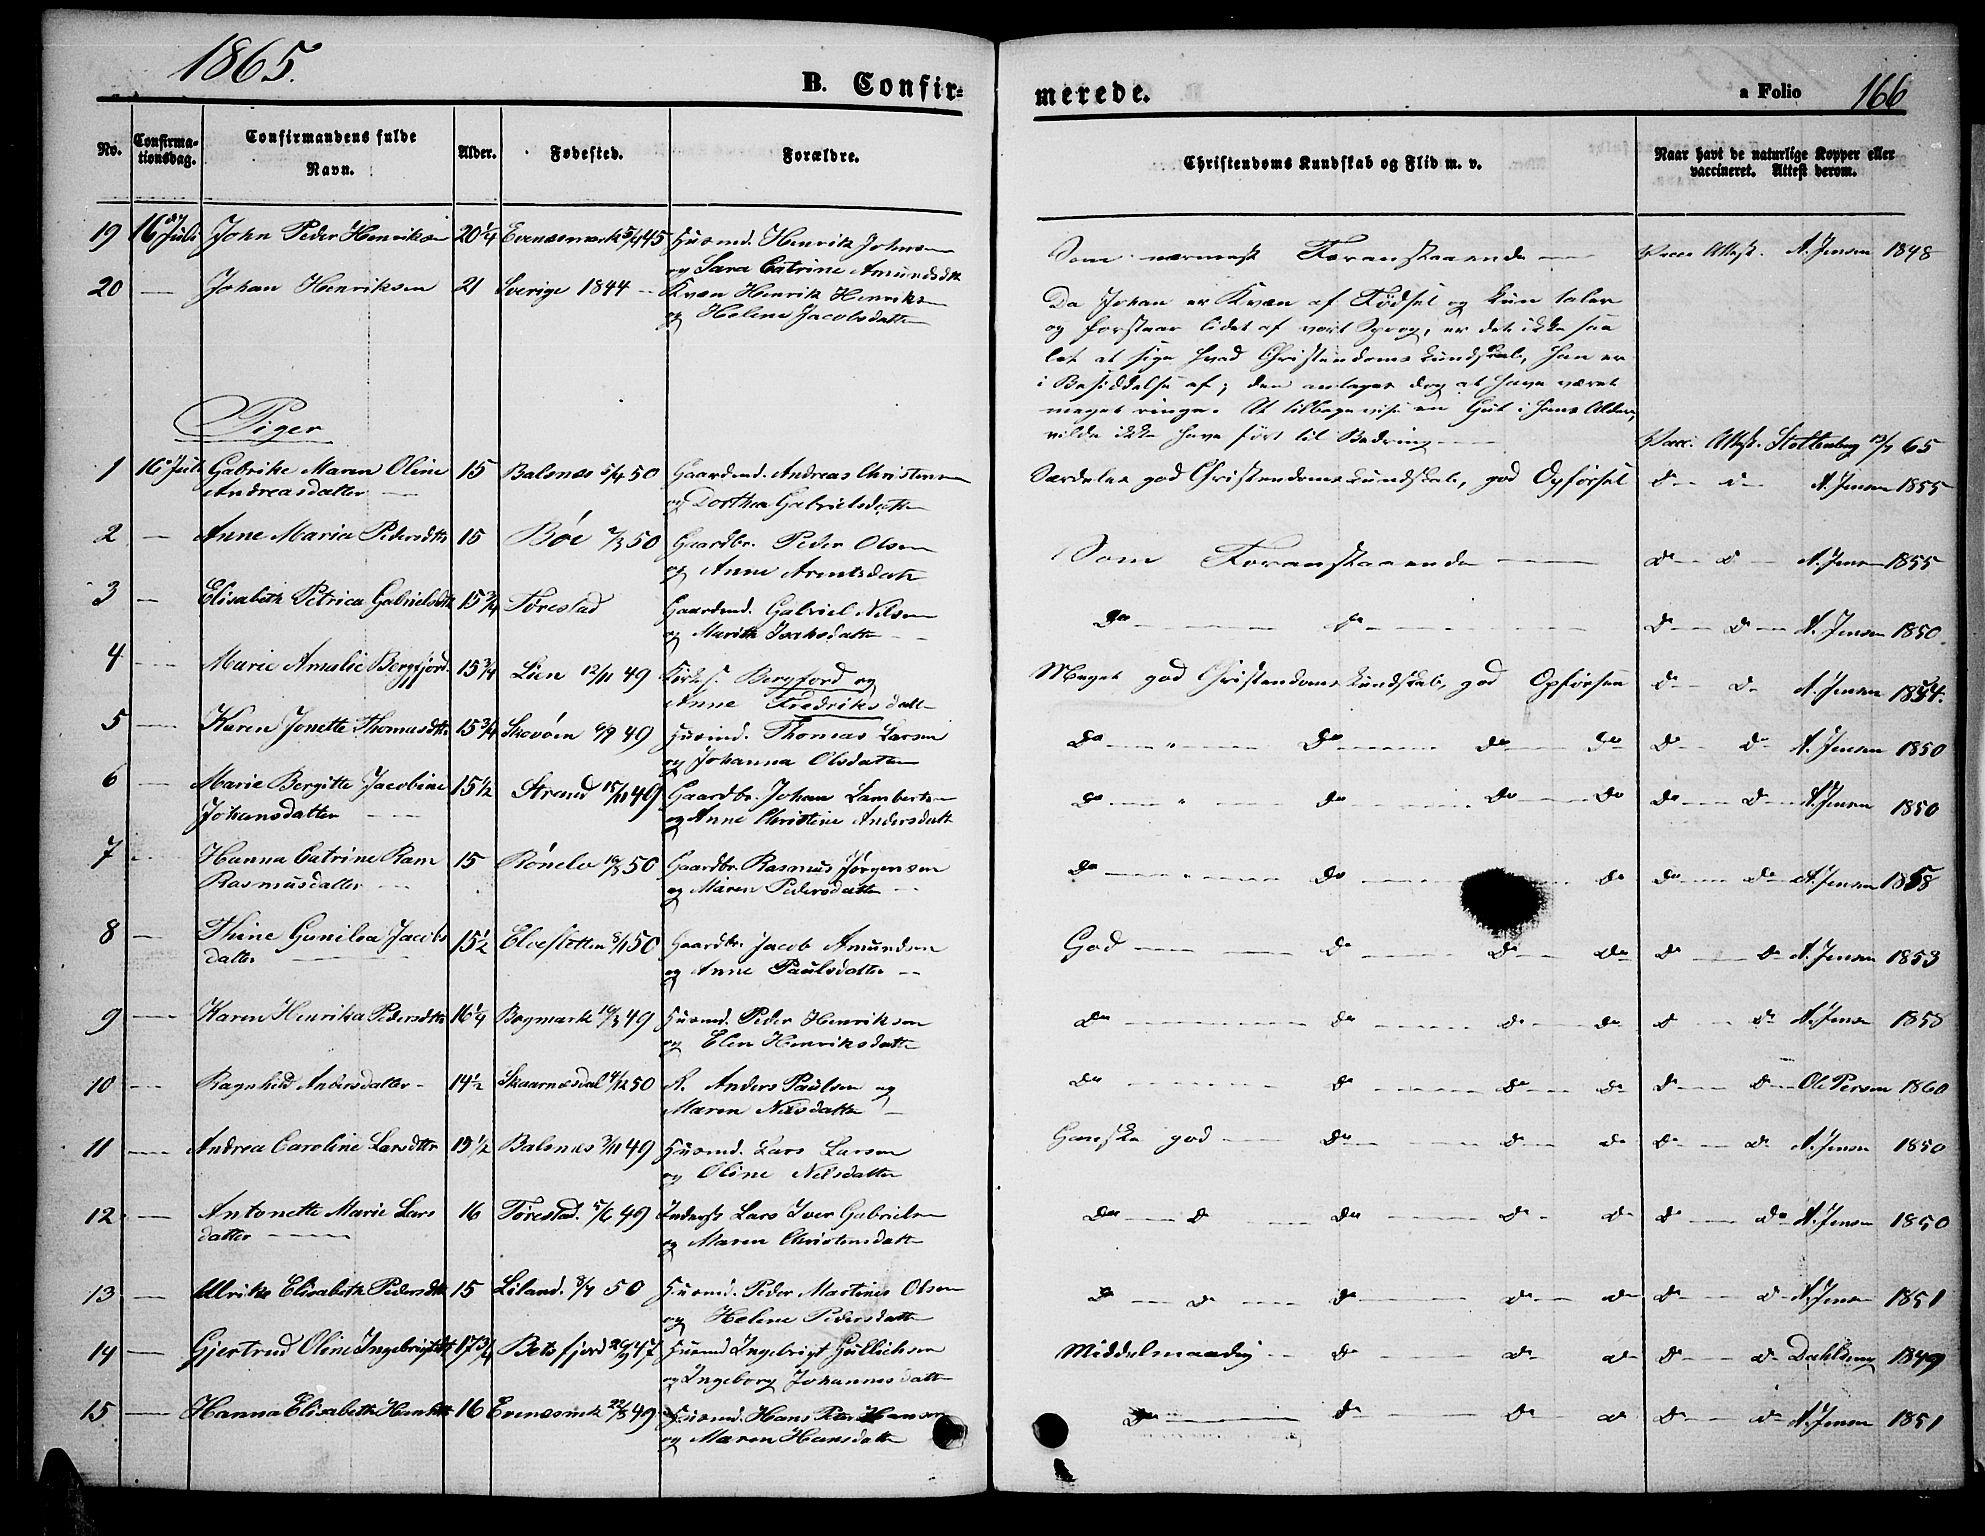 1865.
B. Confir-
merede.
a Folio 166
No. Confirma-tionsdag. Confirmandens fulde Navn. Alder. Fødested. Forældre. Christendoms Kundskab og Flid m. v. Naar havt de naturlige Kopper eller vaccineret. Attest derom.
19 16de Juli John Peder Henriksen 20 1/4 Evenæsmark 5/4 45 Huusmd. Henrik Johnsen Som nærmest Foranstaaende Vacc. Attest. A. Jensen 1848
og Sara Catrine Amundsdtr
20 — Johan Henriksen 21 Sverige 1844 Kvæn Henrik Henriksen Da Johan er Kvæn af Fødsel og kun taler
og Helene Jacobsdatter og forstaar lidet af vort Sprog, er det ikke saa
let at sige hvad Christendomskundskab, han er
i Besiddelse af; den antages dog at have været
meget ringe. At tilbagevise en Gut i hans Alder,
vilde ikke have ført til Bedring Vacc. Attest. Stoltenberg 13/7 65
Piger
1 16 Juli Gabrike Maren Oline 15 Balsnes 5/4 50 Gaardmd. Andreas Christensen Særdeles god Christendomskundskab, god Opførsel do do A. Jensen 1855
Andreasdatter og Dorthea Gabrielsdatter
2 — Anne Maria Pedersdtr 15 Bøe 2/3 50 Gaardbr. Peder Olsen Som Foranstaaende do do A. Jensen 1855
og Anne Arntsdatter
3 — Elisabeth Petrica Gabrielsdtr 15 3/4 Tørestad Gaardmd. Gabriel Nilsen do do do do A. Jensen 1850
og Marith Isaksdatter
4 — Marie Amalie Bergfjord 15 3/4 Lien 12/11 49 Kirkes. Bergfjord og Meget god Christendomskundskab, god Opførsel do do A. Jensen 1854.
Anne Fredriksdatter
5 — Karen Jonette Thomasdtr 15 3/4 Skovøen 6/9 49 Huusmd. Thomas Larsen do do do do do do A. Jensen 1850
og Johanna Olsdatter
6 — Marie Bergitte Jacobine 15 1/2 Strand 15/11 49 Gaardbr. Johan Lambertsen do do do do do do A. Jensen 1850
Johansdatter og Anne Christine Andersdatter
7 — Hanna Catrine Ram 15 Rønelv 10/3 50 Gaardbr. Rasmus Jørgensen do do do do do A. Jensen 1858
Rasmusdatter og Maren Pedersdatter
8 — Thine Gunilea Jacobs 15 1/2 Elveslotten 8/1 50 Gaardbr. Jacob Amundsen God do do do do do A. Jensen 1853
datter og Anne Paulsdatter
9 — Karen Henrika Pedersdtr 16 1/4 Bogmark 10/3 49 Huusmd. Peder Henriksen do do do do do do A. Jensen 1858
og Elen Henriksdatter
10 — Ragnhild Andersdatter 14 1/2 Skaarnesdal 4/12 50 N. Anders Paulsen og do do do do do do Ole Persen 1860
Maren Nilsdatter
11 — Andrea Caroline Larsdtr 15 1/2 Balsnes 3/11 49 Huusmd. Lars Larsen Ganske god do do do do do A. Jensen 1850
og Oline Nilsdatter
12 — Antonette Marie Lars 16 Tørestad. 5/6 49 Inderst Lars Iver Gabrielsen do do do do do do do A. Jensen 1850
datter og Maren Christensdatter
13 — Ulrike Elisabeth Pedersdtr 15 Liland. 8/7 50 Huusmd. Peder Martinus Olsen do do do do do do do A. Jensen 1851
og Helene Pedersdatter
14 — Gjertrud Oline Ingebrigtsdtr 17 3/4 Botsfjord 20/9 47 Huusmd Ingebrigt Gullichsen Middelmaadig do do do do do Dahlseng 1849
og Ingeborg Johannesdatter
15 — Hanna Elisabeth Hansdtr 16 Evenæsmk 22/3 49 Huusmd. Hans Peter Hansen do do do do do A. Jensen 1851
og Maren Hansdatter